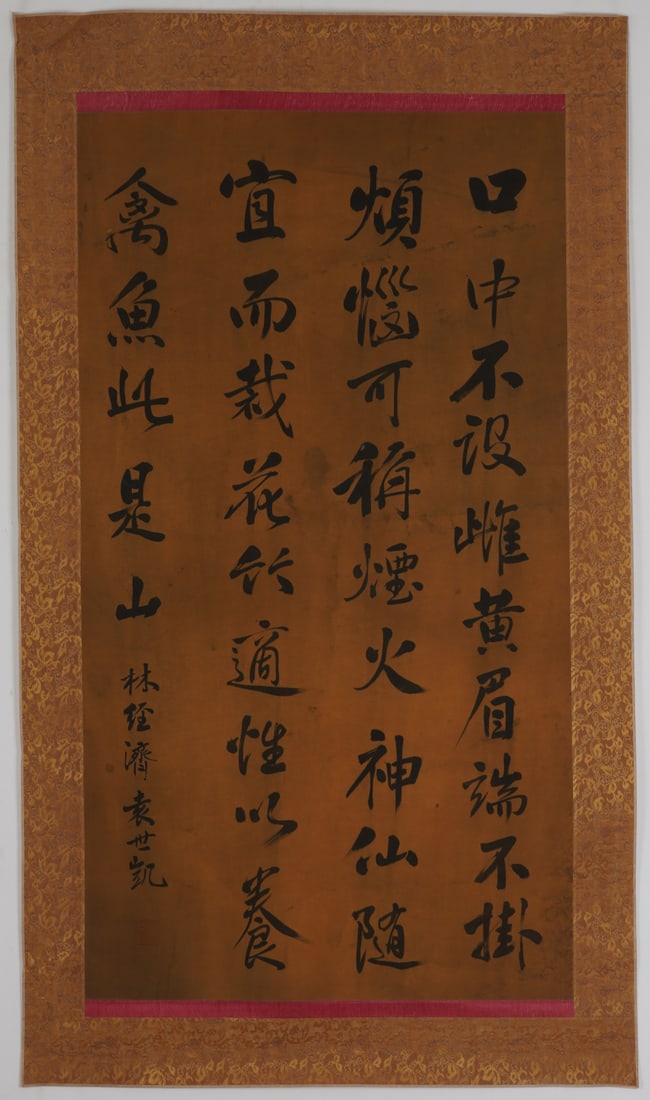 口中不設雌黄眉端不掛
煩惱可稱煙火神仙随
宜而栽花竹適性以養
禽魚此是山
林經濟袁世凱